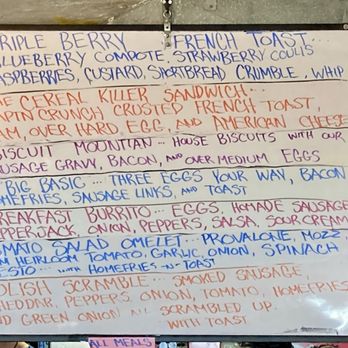 RIPLE BERRY FRENCH TOAST...
BLUEBERRY COMPOTE, STRAWBERRY COULIS
ASPBERRIES, CUSTARD, SHORTBREAD CRUMBLE, WHIP
HE CEREAL KILLER SANDWICH...
AP'N CRUNCH CRUSTED FRENCH TOAST,
AM, OVER HARD EGG, AND AMERICAN CHEESE
BISCUIT MOUNTIAN... HOUSE BISCUITS WITH OUR
AUSAGE GRAVY, BACON, AND OVER MEDIUM EGGS
BIG BASIC... THREE EGGS YOUR WAY, BACON
OMEFRIES, SAUSAGE LINKS, AND TOAST
BREAKFAST BURRITO... EGGS, HOMADE SAUSAGE
EPPERJACK, ONION, PEPPERS, SALSA, SOUR CREAM
OMATO SALAD OMELET... PROVALONE, MOZZ,
M HEIRLOOM TOMATO, GARLIC, ONION, SPINACH
ESTO... WITH HOMEFRIES -N- TOAST
OLISH SCRAMBLE... SMOKED SAUSAGE,
HEDDAR, PEPPERS, ONION, TOMATO, HOMEFRIES
ND GREEN ONION ALL SCRAMBLED UP.
WITH TOAST
ALL MEALS